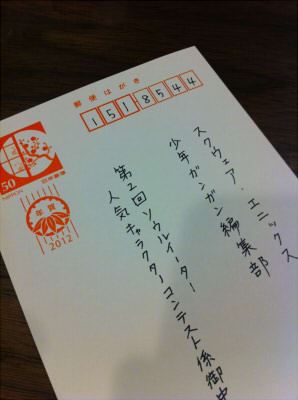 郵便はがき
151-8544
スクウェア・エニックス
少年ガンガン編集部
第2回ソウルイーター
人気キャラクターコンテスト係御中
50
日本郵便
NIPPON
年賀
2012